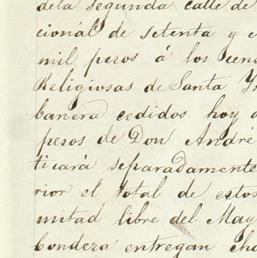 dela segunda calle de
cional de setenta y c
mil pesos á los cen
Religiosas de Santa Ys
banera cedidos hoy a
pesos de Don André
ticará separadamente
rior el total de estos
mitad libre del May
Condera entregan cha